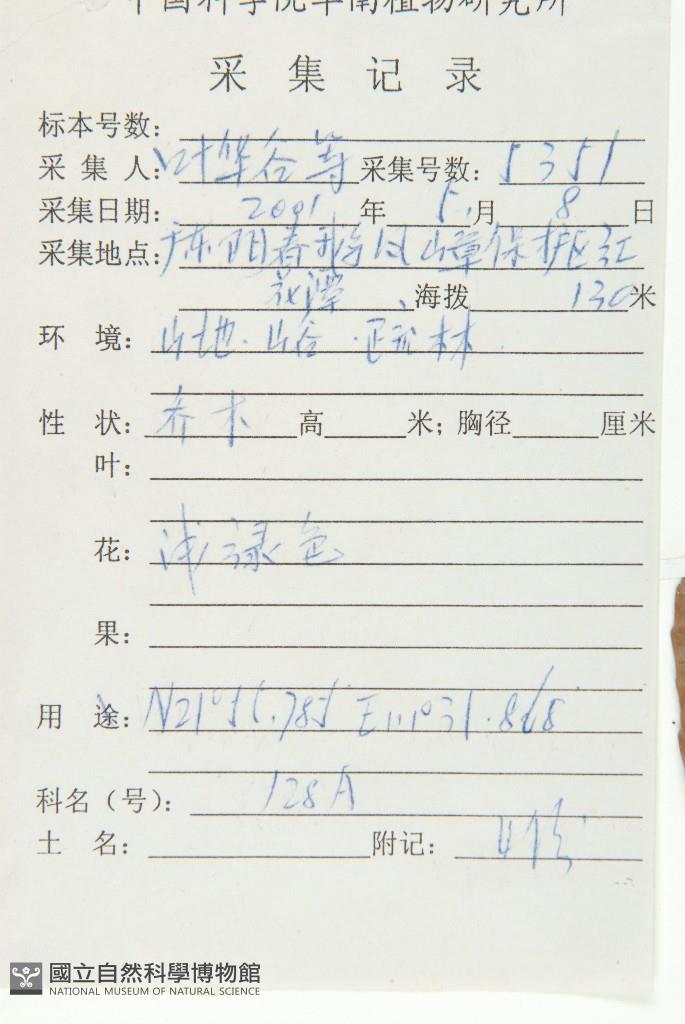 中国科学院华南植物研究所
采集记录
标本号数:
采集人: 叶华谷等 采集号数: 5351
采集日期: 2001 年 5 月 8 日
采集地点: 广东阳春鹅凰嶂保护区红
花潭 海拨 130 米
环境: 山地·山谷·疏林
性状: 乔木 高 米; 胸径 厘米
叶:
花: 浅绿色
果:
用途: N21°51.785' E111°31.868'
科名(号): 128A
土名: 附记: 4份
國立自然科學博物館
NATIONAL MUSEUM OF NATURAL SCIENCE